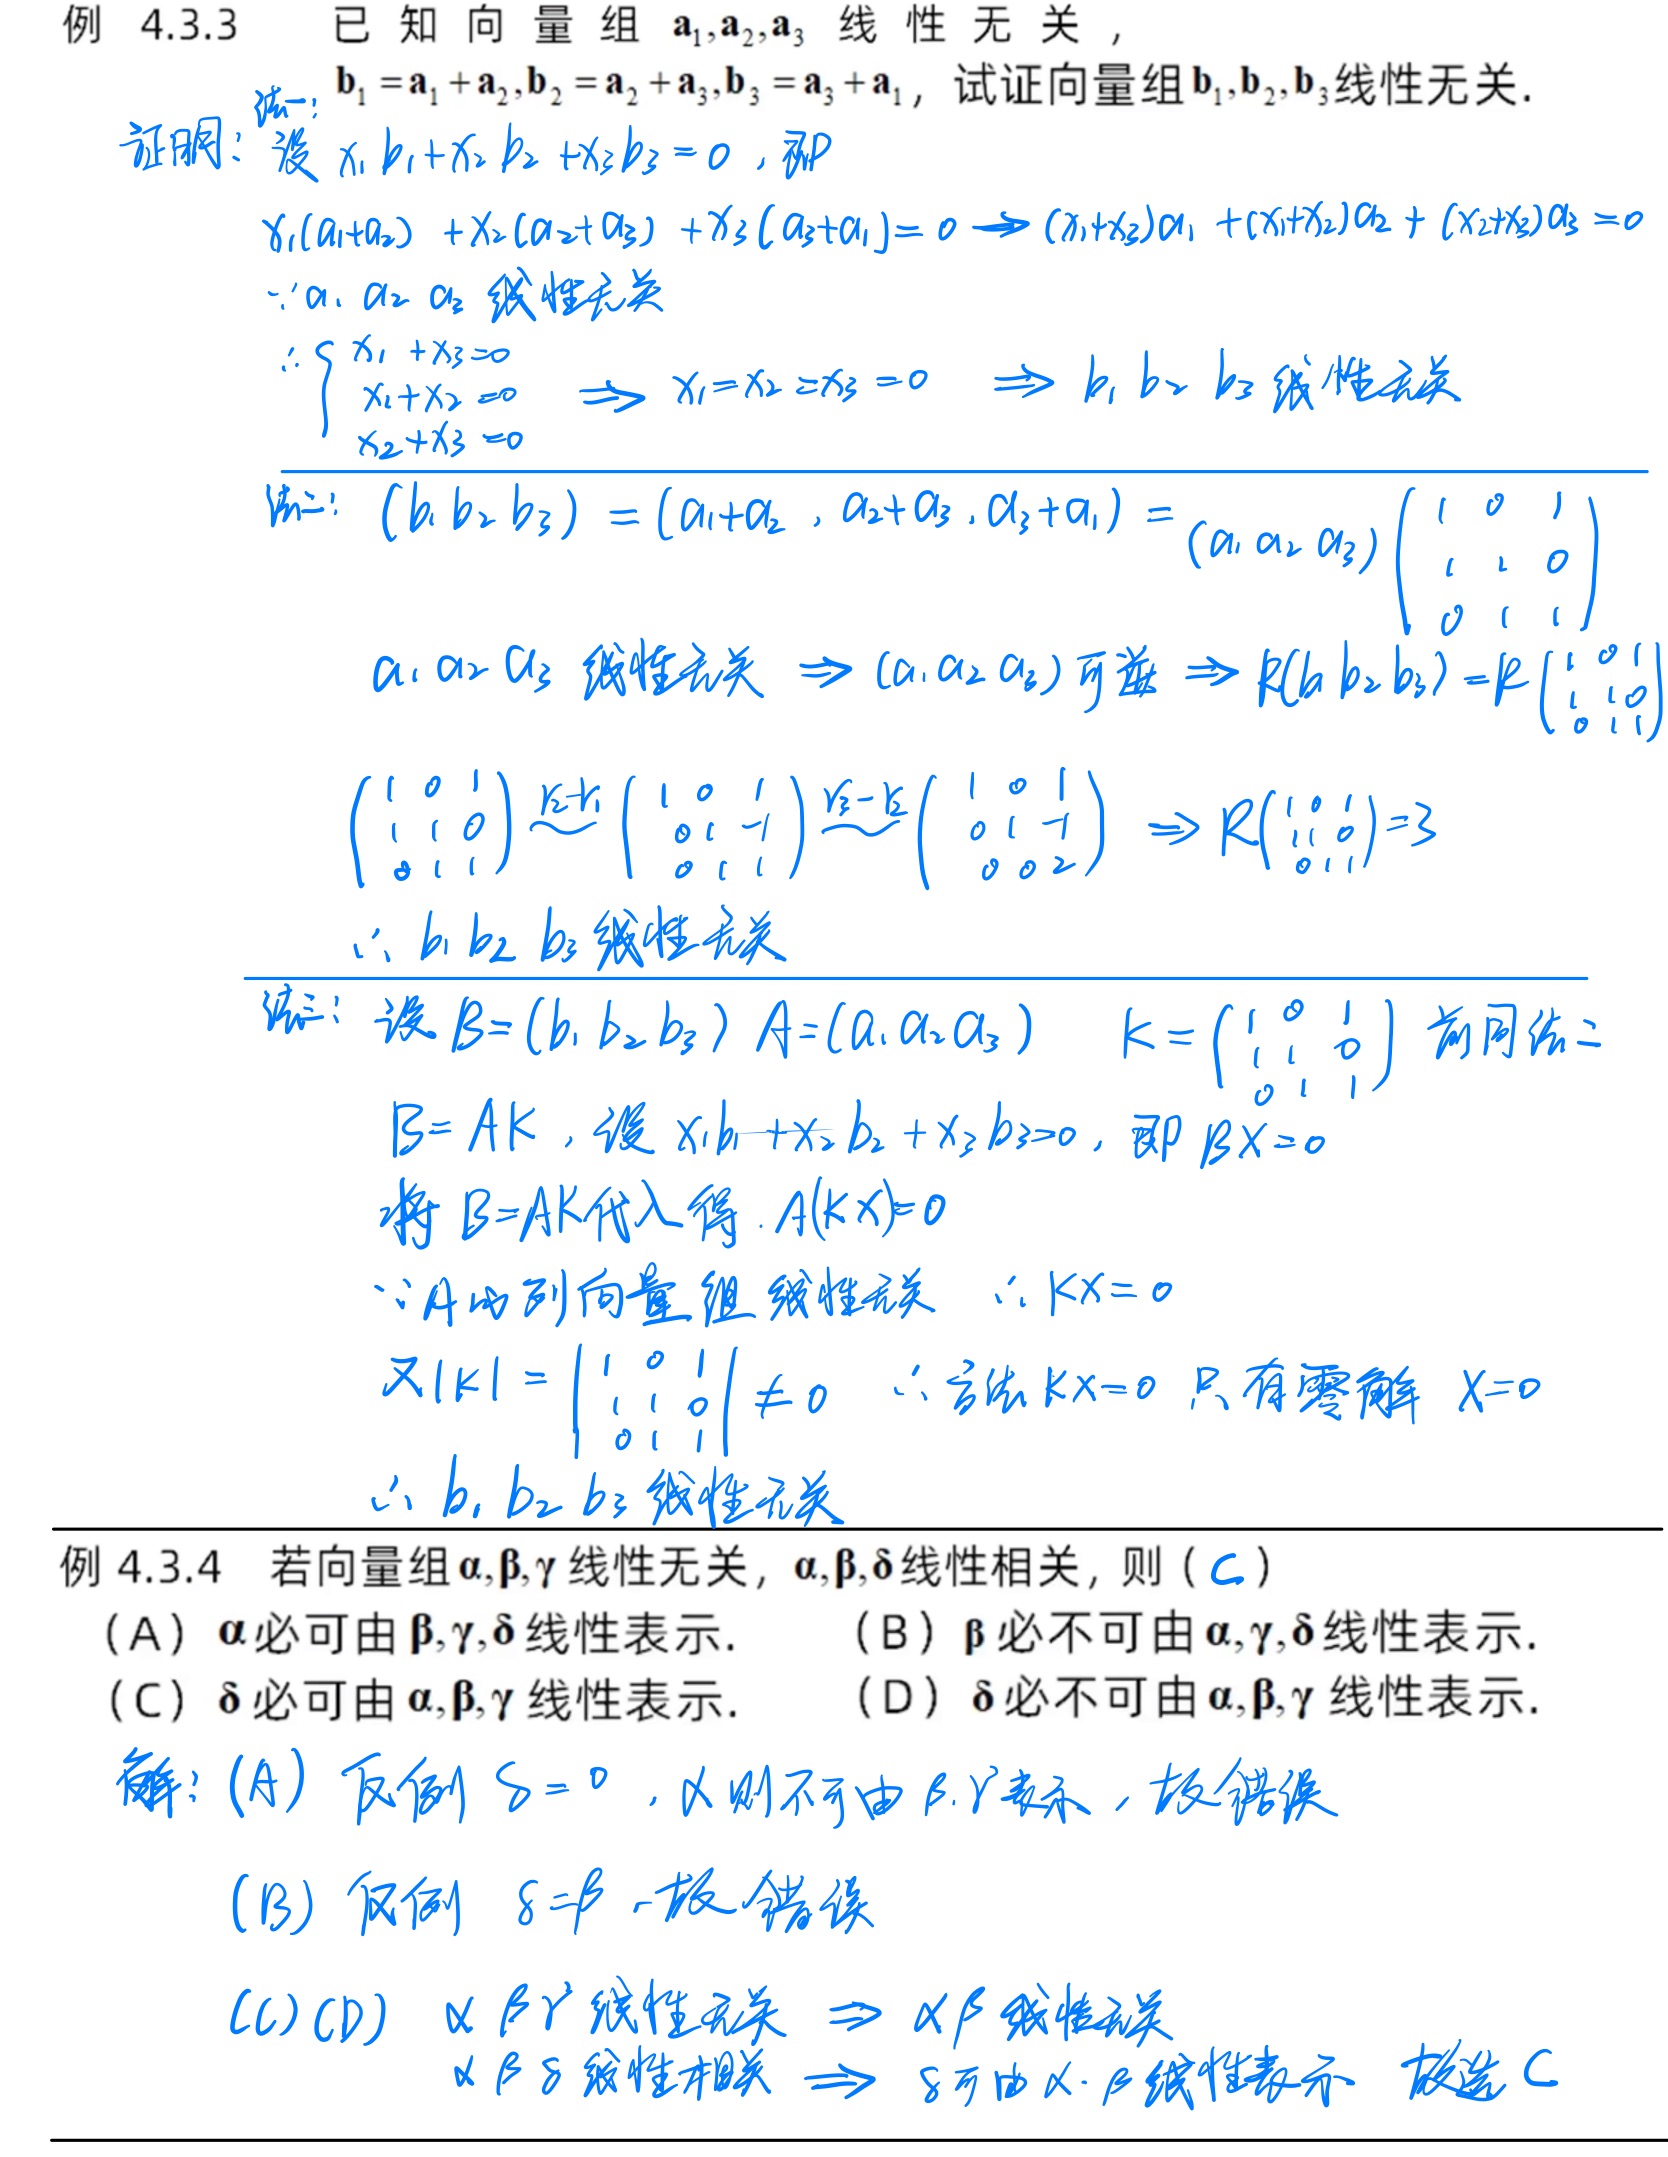 例 4.3.3 已知向量组 a₁,a₂,a₃ 线性无关,
b₁=a₁+a₂,b₂=a₂+a₃,b₃=a₃+a₁, 试证向量组b₁,b₂,b₃线性无关.
证明: 法一: 设 x₁b₁+x₂b₂+x₃b₃=0, 即
x₁(a₁+a₂)+x₂(a₂+a₃)+x₃(a₃+a₁)=0 → (x₁+x₃)a₁+(x₁+x₂)a₂+(x₂+x₃)a₃=0
∵ a₁ a₂ a₃ 线性无关
∴ { x₁+x₃=0
x₁+x₂=0 ⇒ x₁=x₂=x₃=0 ⇒ b₁ b₂ b₃ 线性无关
x₂+x₃=0
法二: (b₁ b₂ b₃) = (a₁+a₂, a₂+a₃, a₃+a₁) = (a₁ a₂ a₃) (1 0 1
1 1 0
0 1 1)
a₁ a₂ a₃ 线性无关 ⇒ (a₁ a₂ a₃) 可逆 ⇒ R(b₁ b₂ b₃) = R (1 0 1
1 1 0
0 1 1)
(1 0 1 r₂-r₁ (1 0 1 r₃-r₂ (1 0 1
1 1 0 ~ 0 1 -1 ~ 0 1 -1 ⇒ R(1 0 1 1 1 0 0 1 1)=3
0 1 1) 0 1 1) 0 0 2)
∴ b₁ b₂ b₃ 线性无关
法三: 设 B=(b₁ b₂ b₃) A=(a₁ a₂ a₃) K=(1 0 1 前同法二
1 1 0
0 1 1)
B=AK, 设 x₁b₁+x₂b₂+x₃b₃=0, 即 BX=0
将 B=AK代入得. A(KX)=0
∵ A的列向量组线性无关 ∴ KX=0
又|K| = |1 0 1
1 1 0 ≠ 0 ∴ 方法 KX=0 只有零解 X=0
0 1 1|
∴ b₁ b₂ b₃ 线性无关
例 4.3.4 若向量组α,β,γ 线性无关, α,β,δ线性相关, 则 ( C )
(A) α必可由 β,γ,δ 线性表示. (B) β 必不可由 α,γ,δ 线性表示.
(C) δ 必可由 α,β,γ 线性表示. (D) δ 必不可由 α,β,γ 线性表示.
解: (A) 反例 δ=0, α则不可由 β.γ表示, 故错误
(B) 反例 δ=β, 故错误
(C)(D) α β γ 线性无关 ⇒ α β 线性无关
α β δ 线性相关 ⇒ δ可由 α.β 线性表示 故选 C